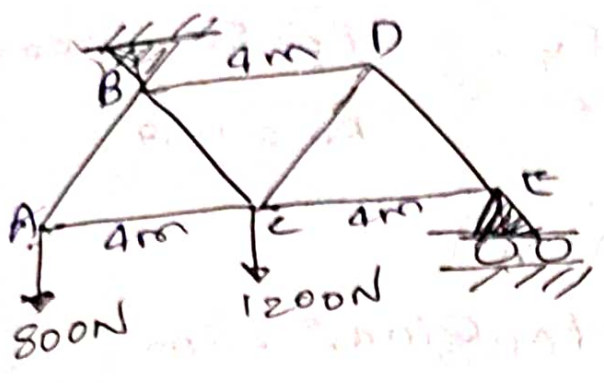 4m
D
B
A
4m
C
4m
E
800N
1200N